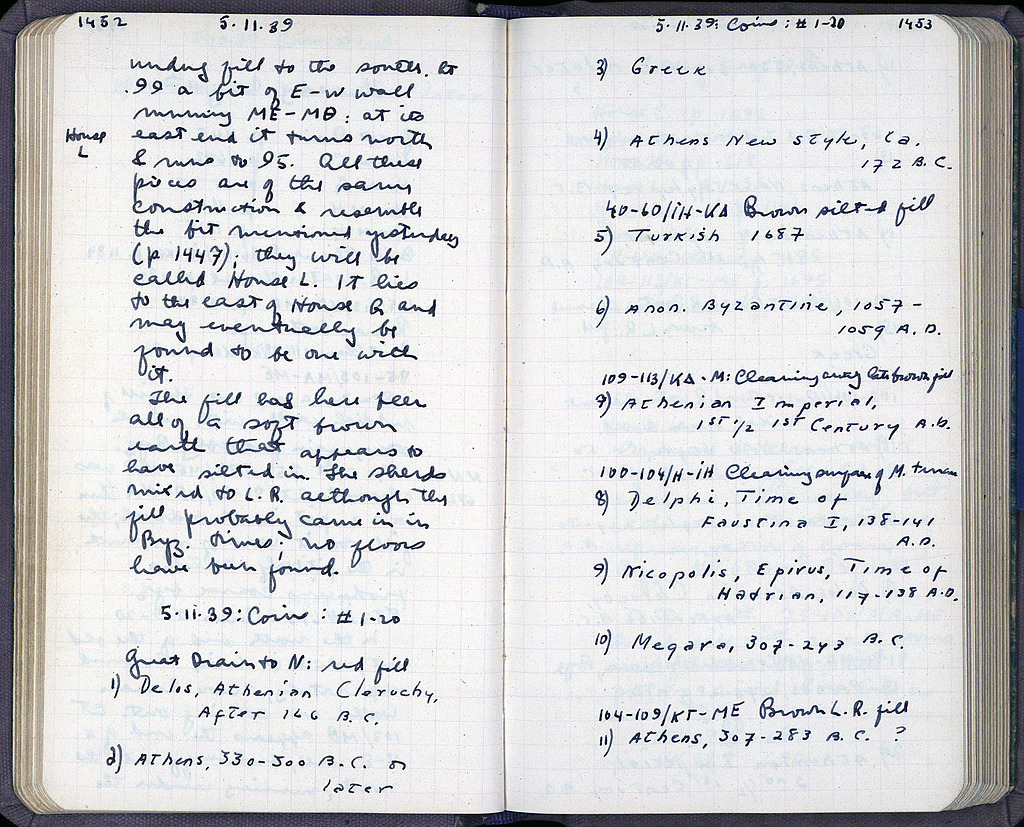 1452
5.11.39
unding fill to the south. At
99 a bit of E-W wall
running ME-MΘ: at its
House
L
east end it turns north
& runs to 95. All these
pieces are of the same
construction & resemble
the bit mentioned yesterday
(p 1447); they will be
called House L. It lies
to the east of House G and
may eventually be
found to be one with
it.
The fill has here been
all of a soft brown
earth that appears to
have silted in. The sherds
mixed to L.R. although the
fill probably came in in
Byz. times; no floors
have been found.
5.11.39: Coins: #1-20
Great Drain to N: red fill
1) Delos, Athenian Cleruchy,
After 166 B.C.
2) Athens, 330-300 B.C. or
later
5.11.39: Coins: #1-20
1453
3) Greek
4) Athens New Style, ca.
172 B.C.
40-60/ΙΗ-ΚΔ Brown silted fill
5) Turkish 1687
6) Anon. Byzantine, 1057-
1059 A.D.
109-113/ΚΔ-Μ: Clearing away late brown fill
7) Athenian Imperial,
1st 1/2 1st Century A.D.
100-104/Η-ΙΗ Clearing surface of M.
8) Delphi, Time of
Faustina I, 138-141
A.D.
9) Nicopolis, Epirus, Time of
Hadrian, 117-138 A.D.
10) Megara, 307-243 B.C.
104-109/ΚΣΤ-ΜΕ Brown L.R. fill
11) Athens, 307-283 B.C. ?